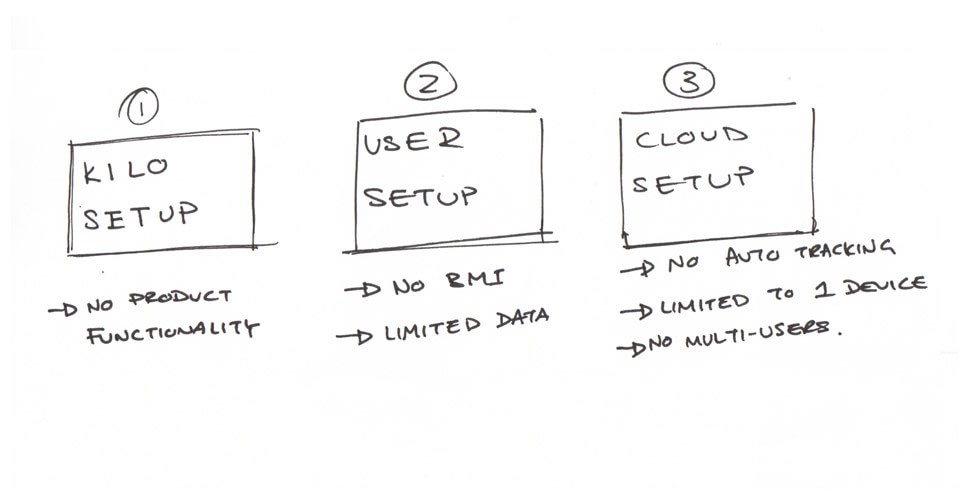 1
KILO
SETUP
→ NO PRODUCT
FUNCTIONALITY
2
USER
SETUP
→ NO BMI
→ LIMITED DATA
3
CLOUD
SETUP
→ NO AUTO TRACKING
→ LIMITED TO 1 DEVICE
→ NO MULTI-USERS.